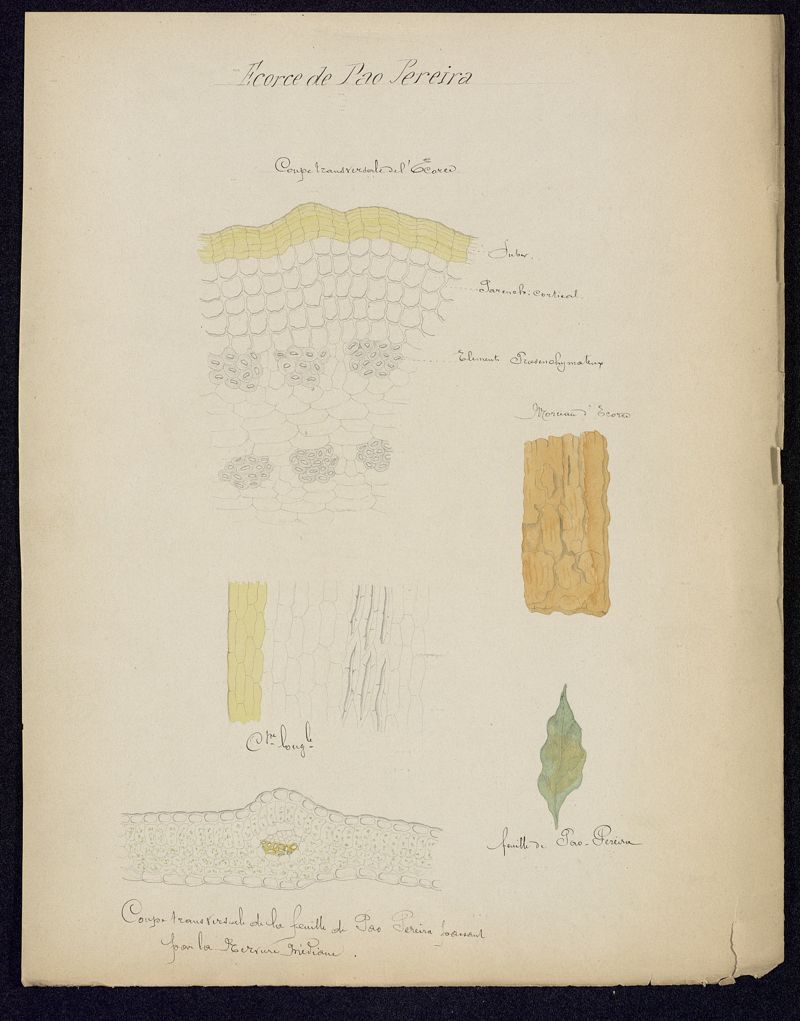 Ecorce de Pao Pereira
Coupe transversale de l'Écorce
Suber.
Parench: cortical.
Elements Prosenchymateux
Morceau d'Écorce
Cpe longle
feuille de Pao-Pereira
Coupe transversale de la feuille de Pao Pereira passant
par la Nervure Médiane.